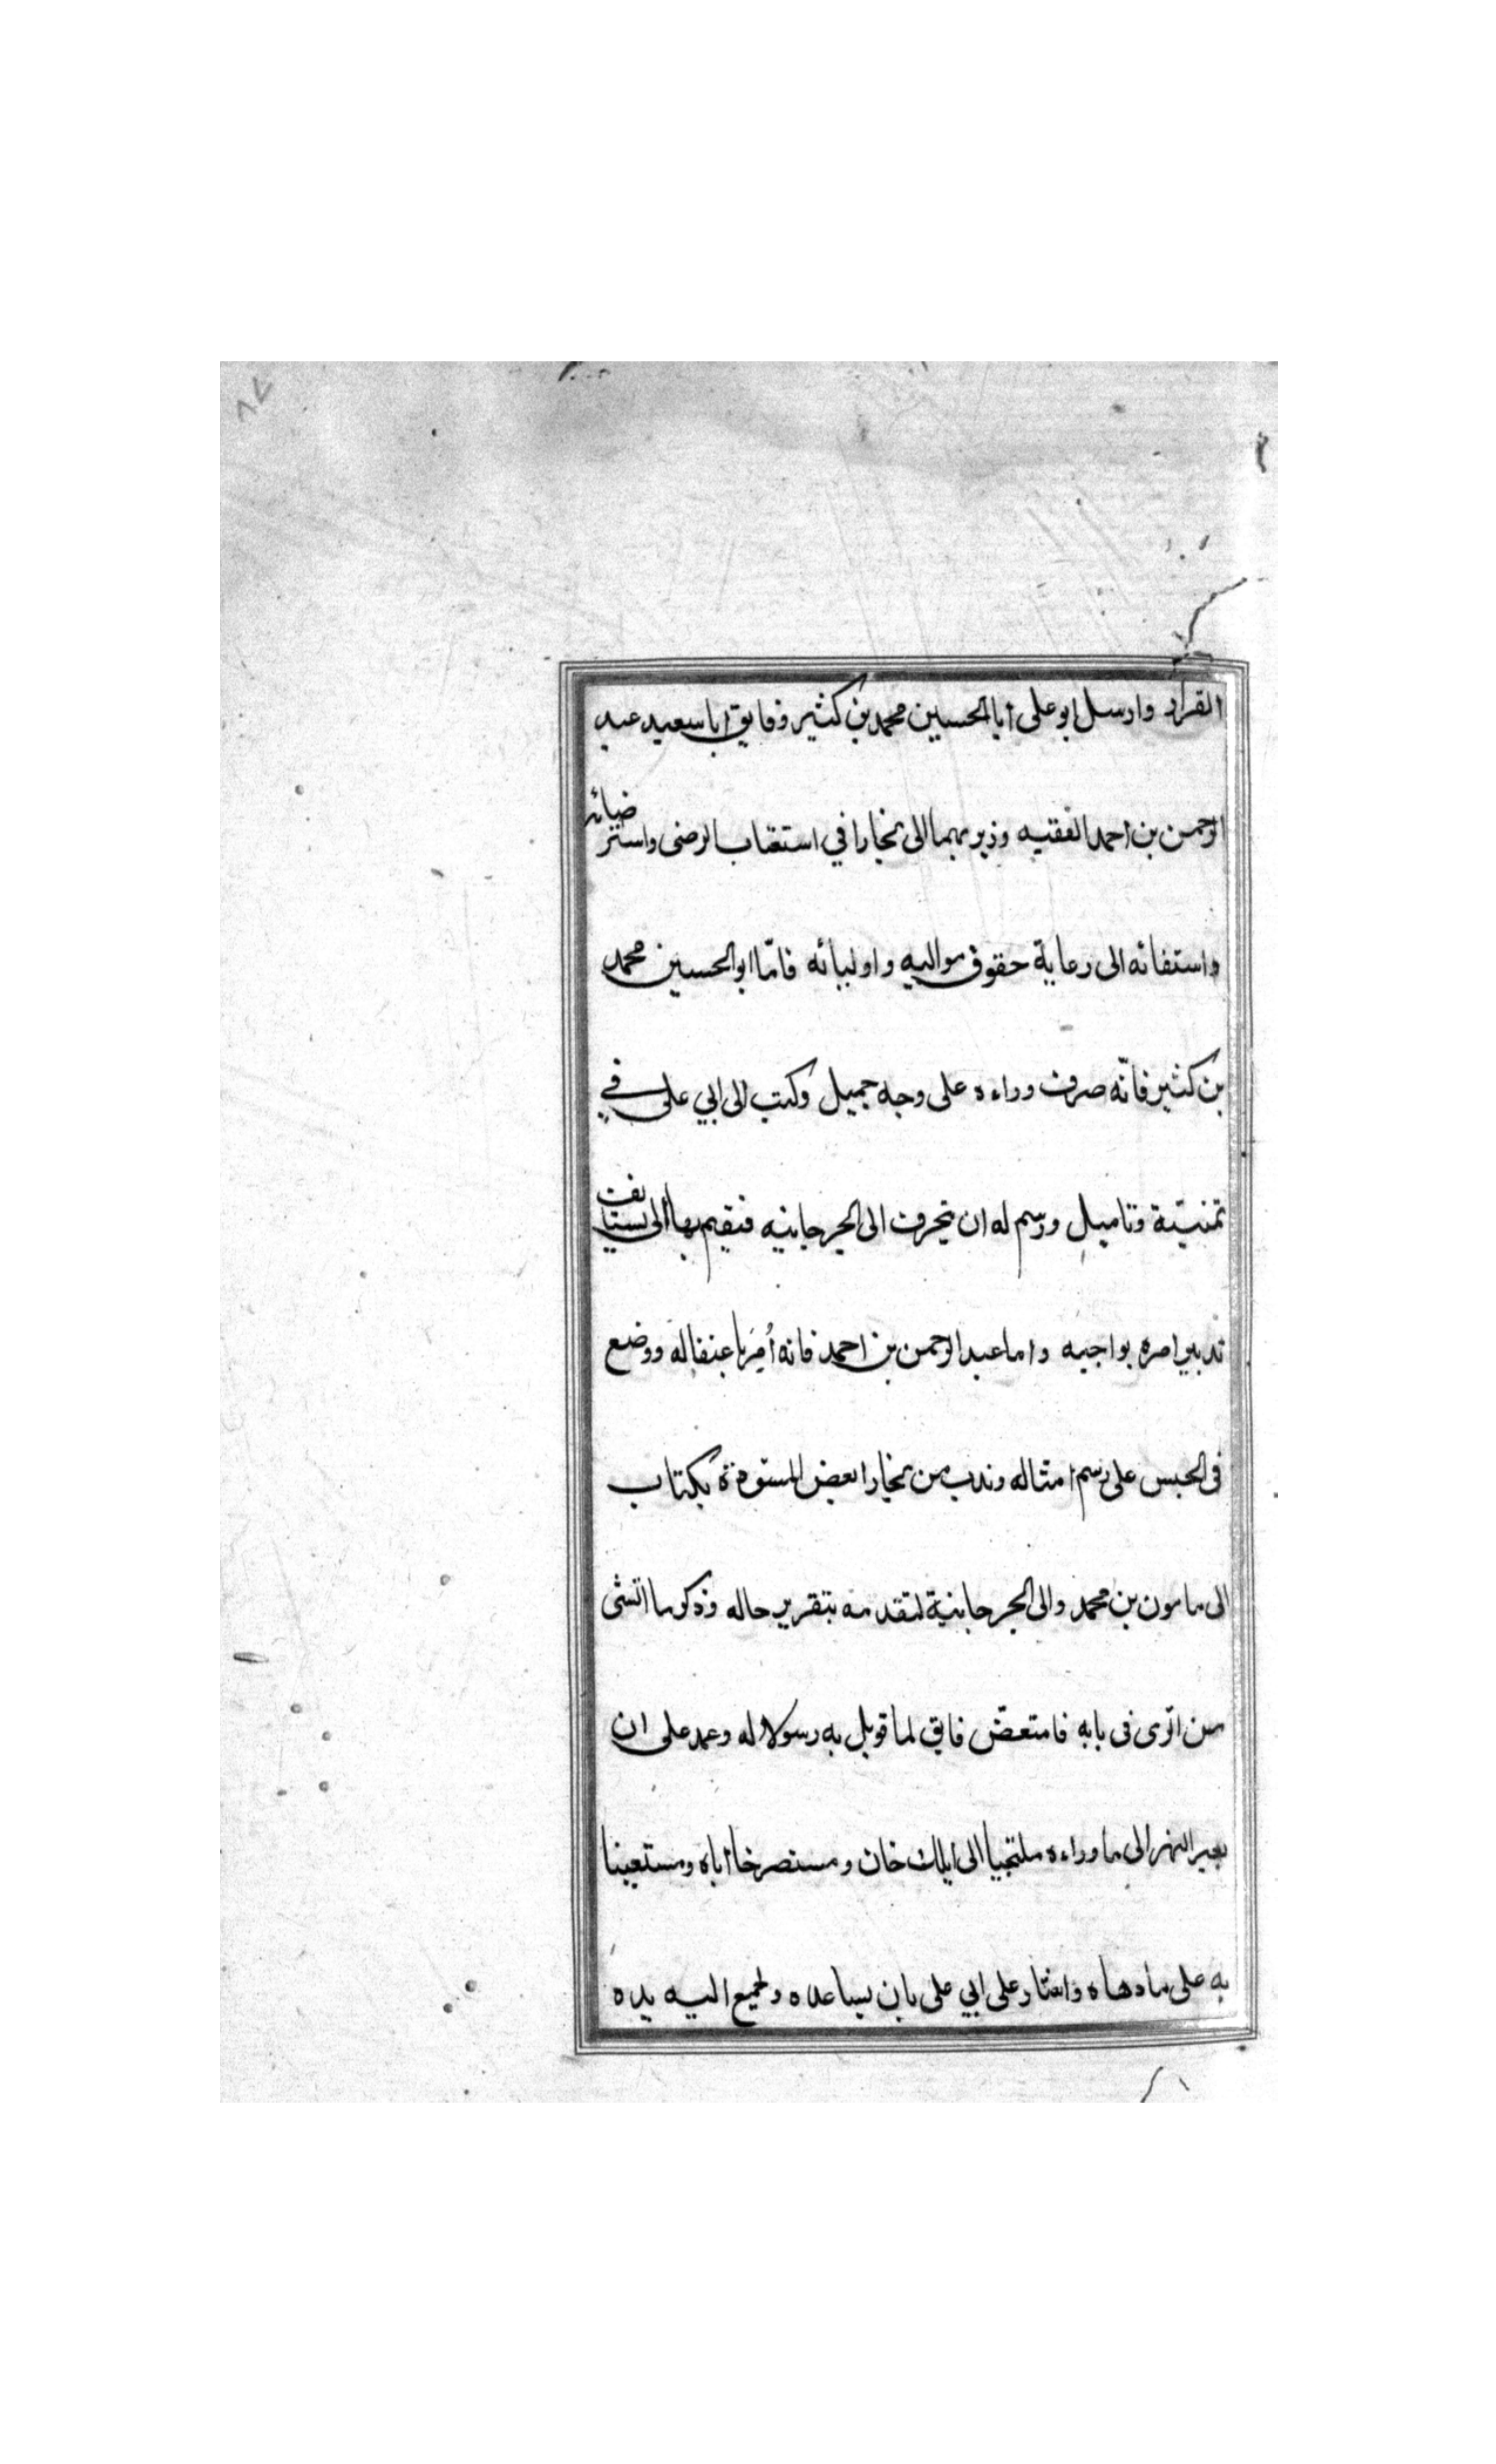 ٨٧
القرار وارسل ابو على ابا الحسين محمد بن كثير وفايق ابا سعيد عبد
الرحمن بن احمد الفقيه وزيريهما الى بخارا في استعتاب الرضى واستز
ضيائه
واستفائه الى رعاية حقوق مواليه واوليائه فامّا ابو الحسين محمد
بن كثير فانّه صرف وراءه على وجه جميل وكتب الى ابي على في
تمنيته وتاميل ورسم له ان ينحرف الى الجرجانيه فيقيم بها الى يستيا
نف
تدبير امره بواجبه واما عبد الرحمن بن احمد فانه أمر باعنفاله ووضع
فى الحبس على رسم امثاله وندب من بخارا بعض المستوفزة بكتاب
الى مامون بن محمد والى الجرجانية لتقدمه بتقرير حاله وذكر ما انشى
من اترى فى بابه فامتعضّ فايق لما قوبل به رسولا له وعمد على ان
يعبر النهر الى ما وراءه ملتجيا الى ايلك خان ومستصرخا اباه ومستعينا
به على ما دهاه واشار على ابي على بان يساعده وتجميع اليه يده